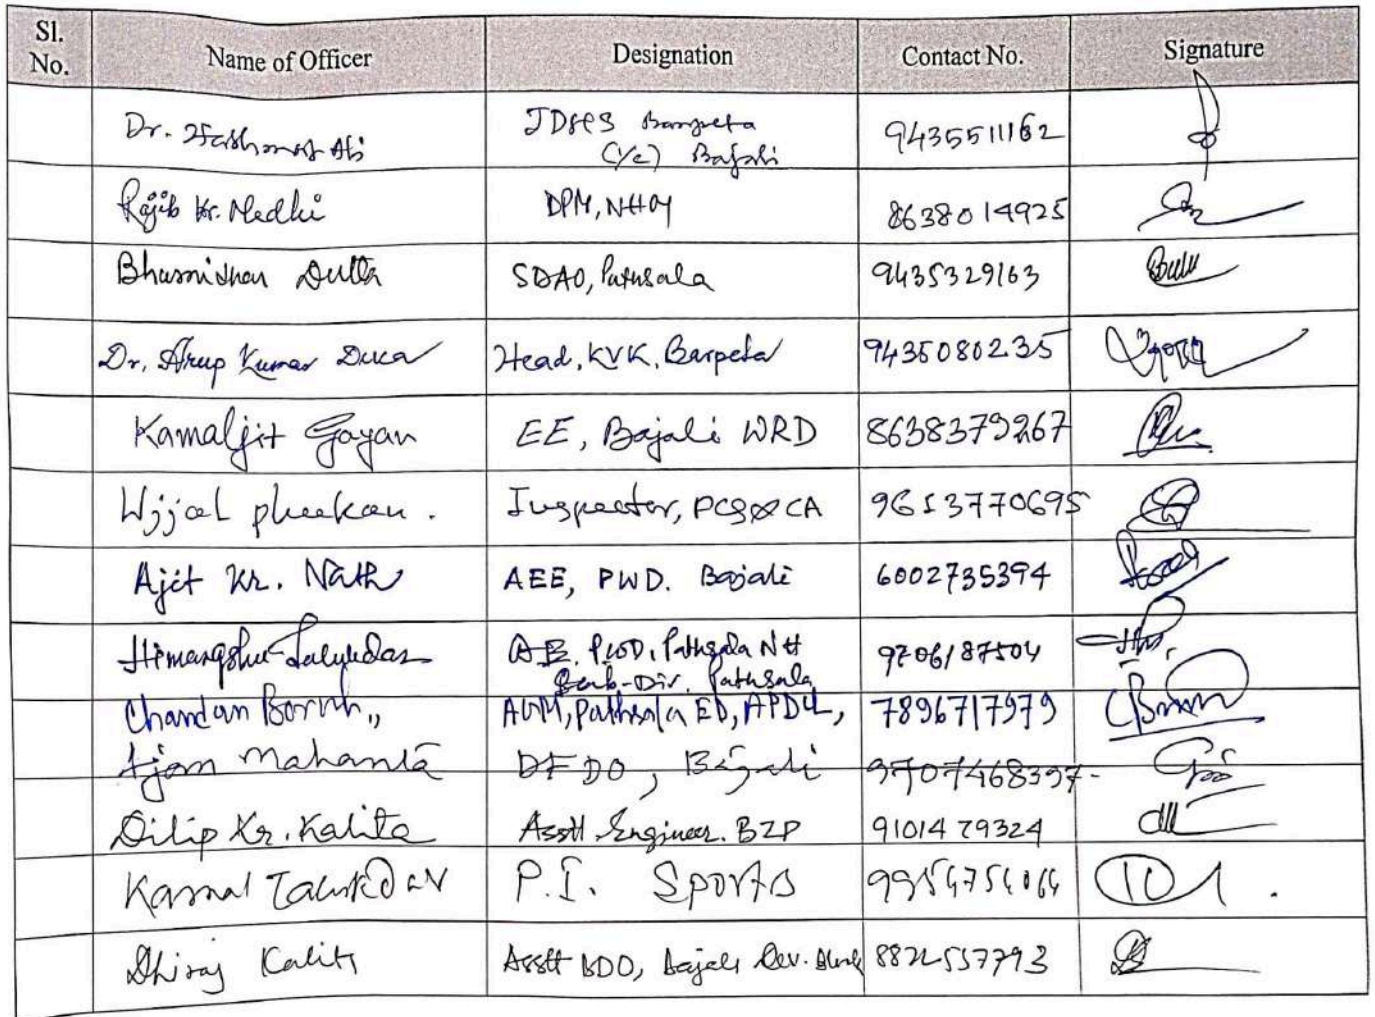 Sl. No. Name of Officer Designation Contact No. Signature
Dr. Hashmat Ali JDHS Barpeta 9435511162
(i/c) Bajali
Rajib Kr. Medhi DPM, NHM 8638014925
Dutta SDAO, Pathsala 9435329163
Dr. Arup Kumar Deka Head, KVK, Barpeta 9435080235
Kamaljit Gayan EE, Bajali WRD 8638379267
Ujjal phukan. Inspector, 9613770695
Ajit Kr. Nath AEE, PWD. Bajali 6002735394
Himangshu Talukdar AE. PWD, Pathsala NH 9706187504
Sub-Div. Pathsala
Chandan Boruah,, AGM, Pathsala ED, APDCL, 7896717979
Mahanta DFDO, Bajali 9707468397-
Dilip Kr. Kalita Asstt Engineer. BZP 9101479324
Kamal Talukdar P.I. Sports
Dhiraj Kalita Asstt BDO, Bajali Dev. Block 8822557793